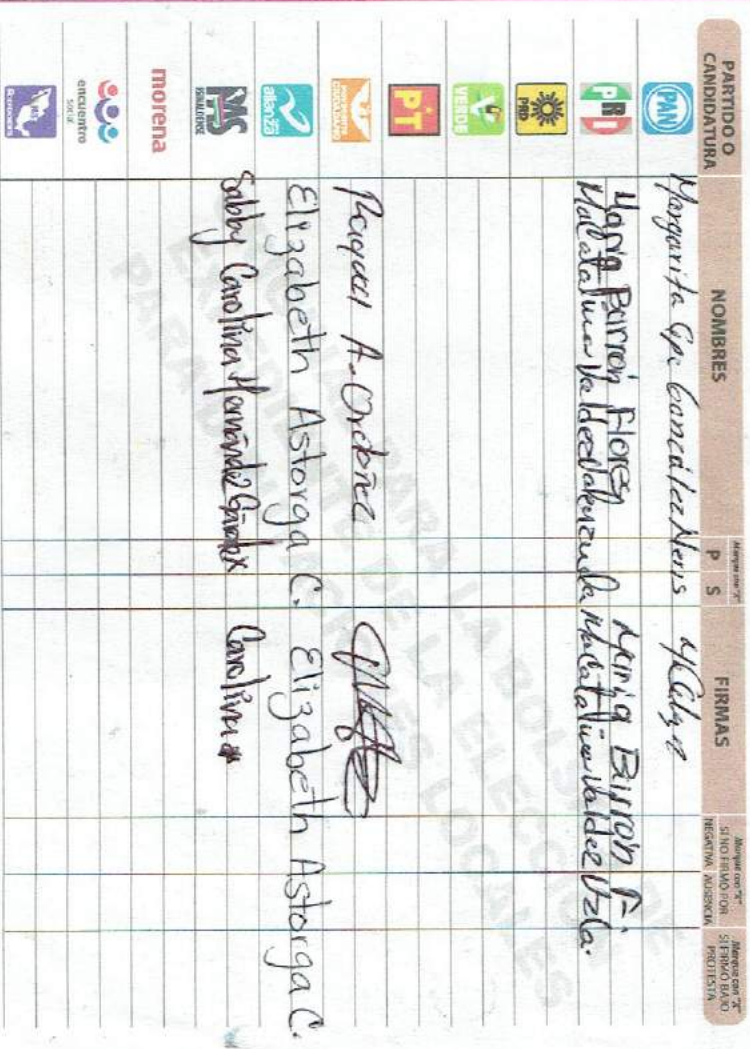 PARTIDO O CANDIDATURA
NOMBRES
Marque con "X"
P S
FIRMAS
Marque con "X" SI NO FIRMÓ POR
NEGATIVA AUSENCIA
Marque con "X" SI FIRMÓ BAJO PROTESTA
PAN
Margarita Gpe González Neris
PRI
María Barrón Flores María Barrón F.
Ma Catalina Valdez Valenzuela Ma Catalina Valdez Vzla.
PRD
VERDE
PT
MOVIMIENTO CIUDADANO
Raquel A. Ordoñez
alianza
Elizabeth Astorga C. Elizabeth Astorga C.
PAS
SINALOENSE
Sabby Carolina Hernández Carolina
morena
encuentro
social
PARA LA BOLSA DE
EXPEDIENTE DE LA ELECCIÓN
PARA LOCALES